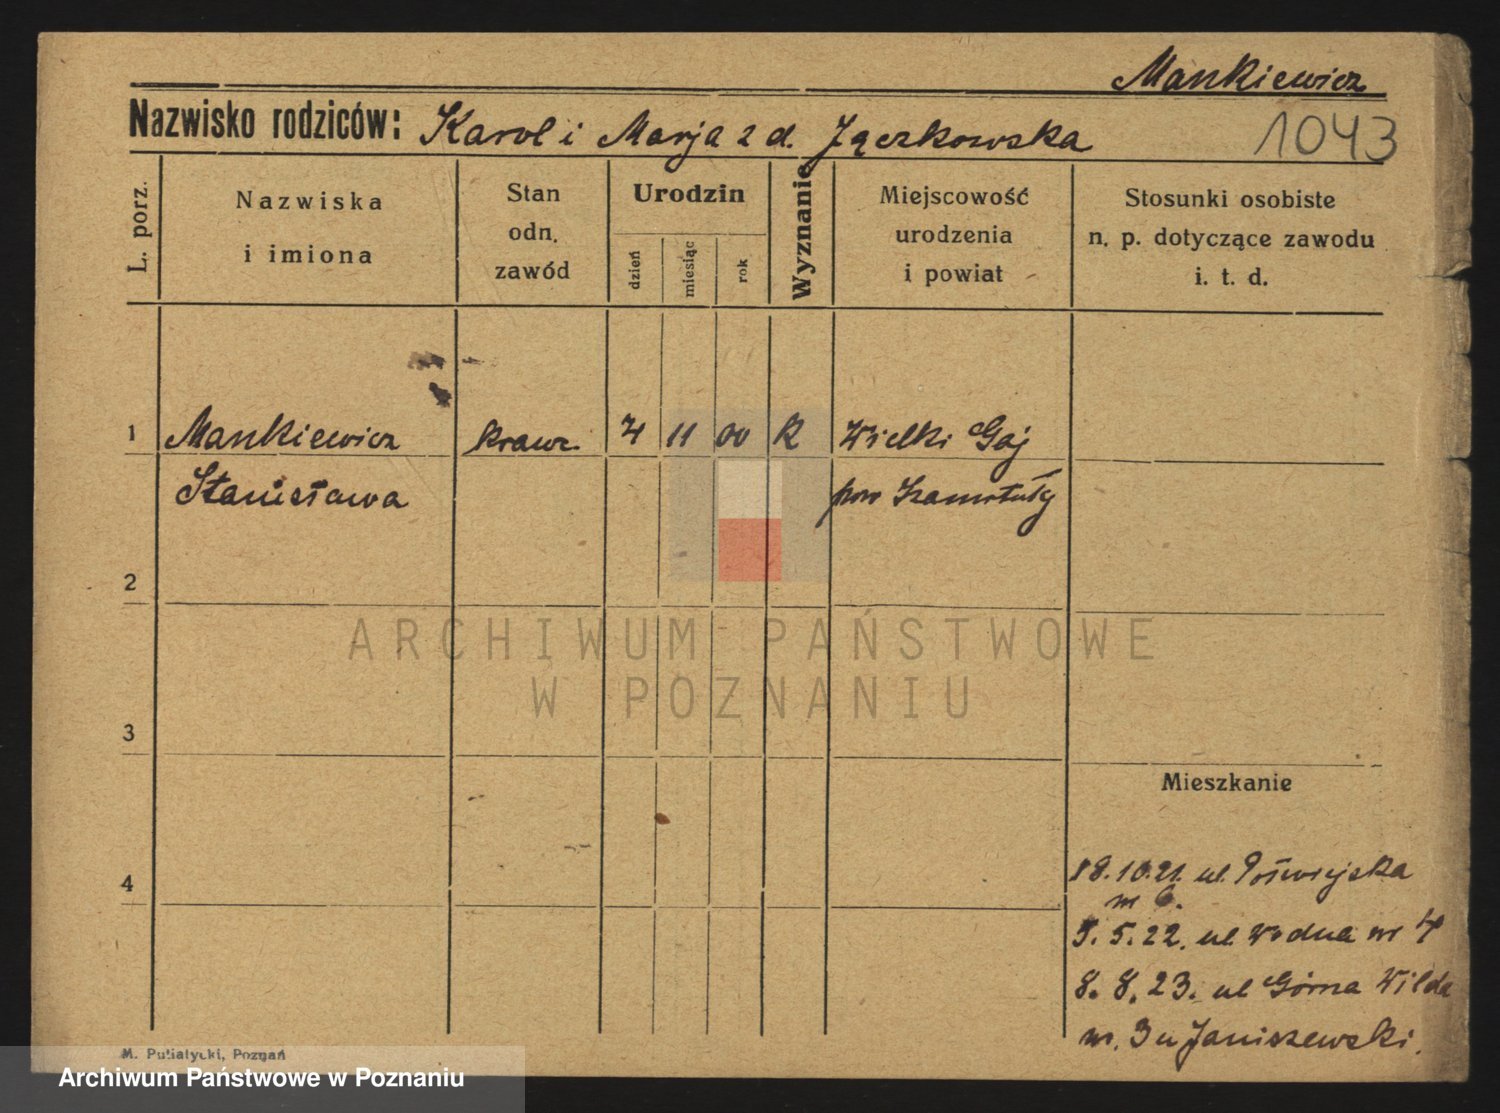 Mankiewicz
Nazwisko rodziców: Karol i Marja z d. Jączkowska
1043
L. porz.
Nazwiska
i imiona
Stan
odn.
zawód
Urodzin
dzień
miesiąc
rok
Wyznanie
Miejscowość
urodzenia
i powiat
Stosunki osobiste
n. p. dotyczące zawodu
i. t. d.
1 Mankiewicz krawc. 4 11 00 K Wielki Gaj
Stanisława pow Szamotuły
2
ARCHIWUM PAŃSTWOWE
W POZNANIU
3
Mieszkanie
4
18.10.21. ul. Półwiejska
nr 6.
5.5.22. ul. Wodna nr 4
8.8.23. ul Górna Wilda
nr. 3 u Janiszewski.
M. Putiatycki, Poznań
Archiwum Państwowe w Poznaniu